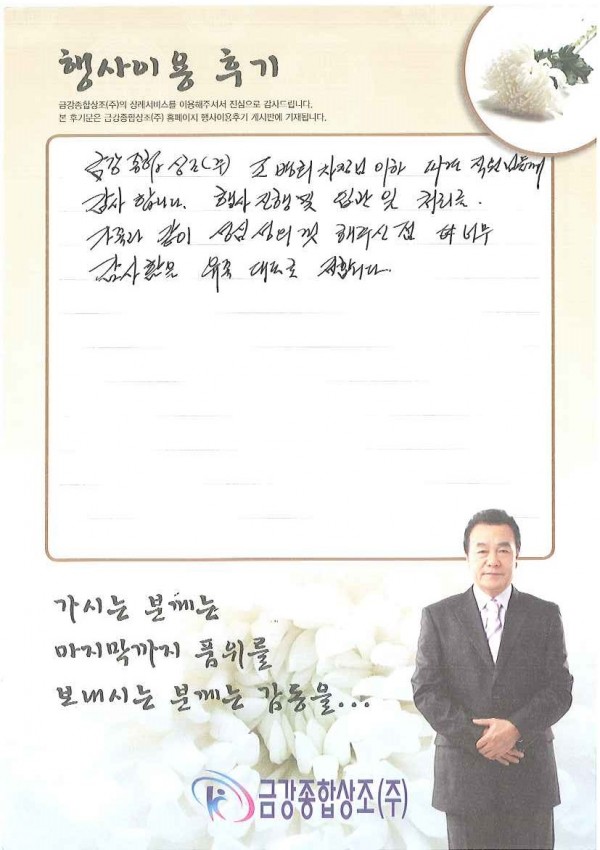 행사이용 후기
금강종합상조(주)의 상례서비스를 이용해주셔서 진심으로 감사드립니다.
본 후기문은 금강종합상조(주) 홈페이지 행사이용후기 게시판에 기재됩니다.
금강 종합 상조(주) 조병희 차장님 이하 파견 직원님들께
감사 합니다. 행사 진행 및 입관 및 처리로.
가족과 같이 성심 성의껏 해주신 점 너무
감사함을 유족 대표로 전합니다.
가시는 분께는
마지막까지 품위를
보내시는 분께는 감동을...
금강종합상조(주)